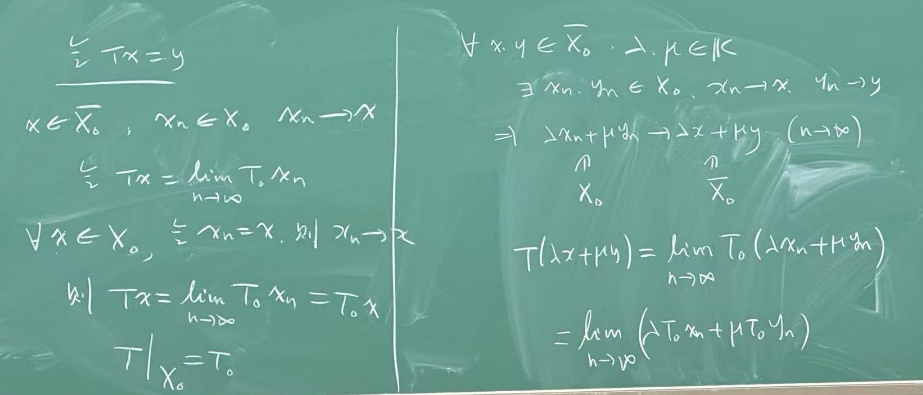 令 Tx = y
x ∈ X̄₀, xₙ ∈ X₀ xₙ → x
令 Tx = lim_{n→∞} T₀ xₙ
∀ x ∈ X₀, 令 xₙ = x. 则 xₙ → x
则 Tx = lim_{n→∞} T₀ xₙ = T₀ x
T|_{X₀} = T₀
∀ x. y ∈ X̄₀. λ. μ ∈ 𝕂
∃ xₙ. yₙ ∈ X₀. xₙ → x. yₙ → y
⇒ λxₙ + μyₙ → λx + μy (n→∞)
⋒ ⋒
X₀ X̄₀
T(λx + μy) = lim_{n→∞} T₀(λxₙ + μyₙ)
= lim_{n→∞} (λT₀xₙ + μT₀yₙ)